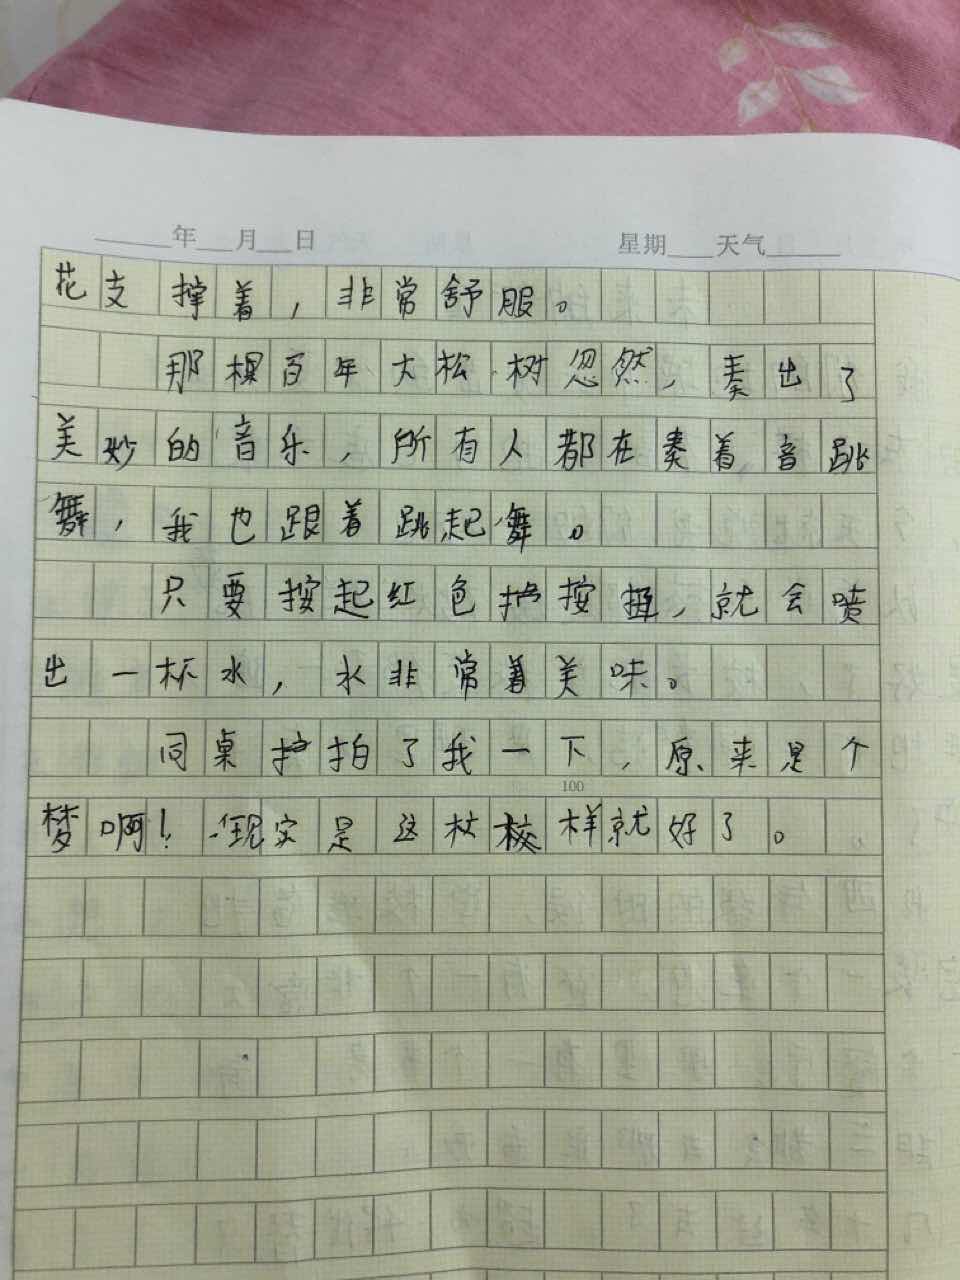 年 月 日 星期 天气
花支撑着，非常舒服。
那棵百年大松树忽然，奏出了
美妙的音乐，所有人都在奏着音跳
舞，我也跟着跳起舞。
只要按起红色按扭，就会喷
出一杯水，水非常着美味。
同桌拍了我一下，原来是个
100
梦啊！现实是这样就好了。